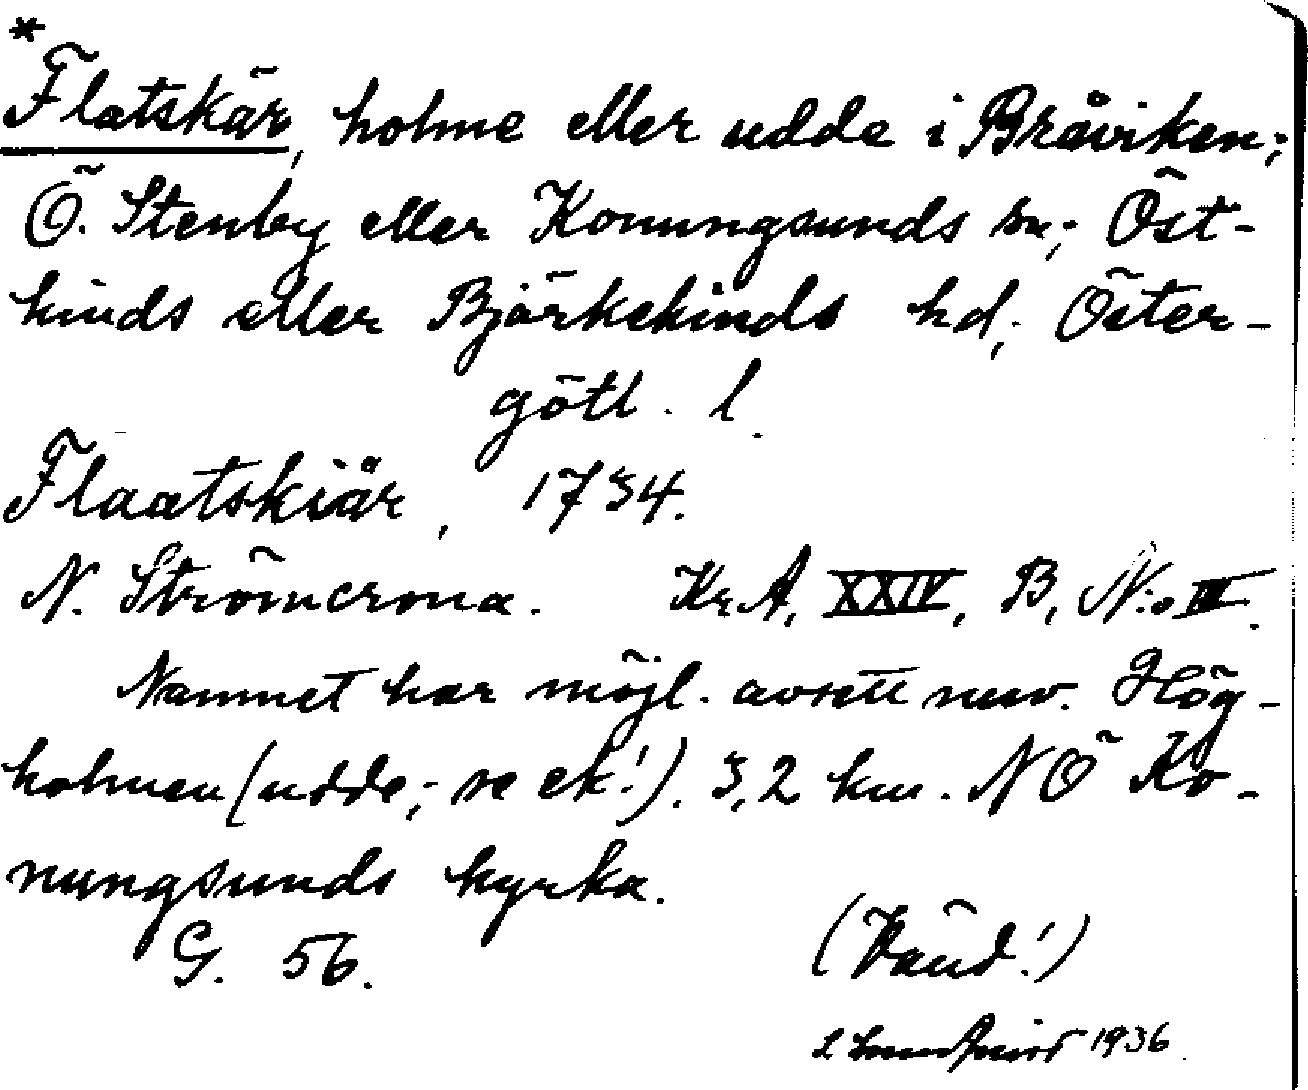 *
Flatskär, holme eller udde i Bråviken;
Ö. Stenby eller Konungsunds sn; Öst-
kinds eller Björkekinds hd; Öster-
götl. l.
Flaatskiär, 1734.
N. Strömcrona. Kr.A. XXIV, B, N:o III.
Namnet har möjl. avsett nuv. Hög-
holmen (udde; se ek!). 3,2 km. NÖ Ko-
nungsunds kyrka.
G. 56.
(Vänd!)
1936